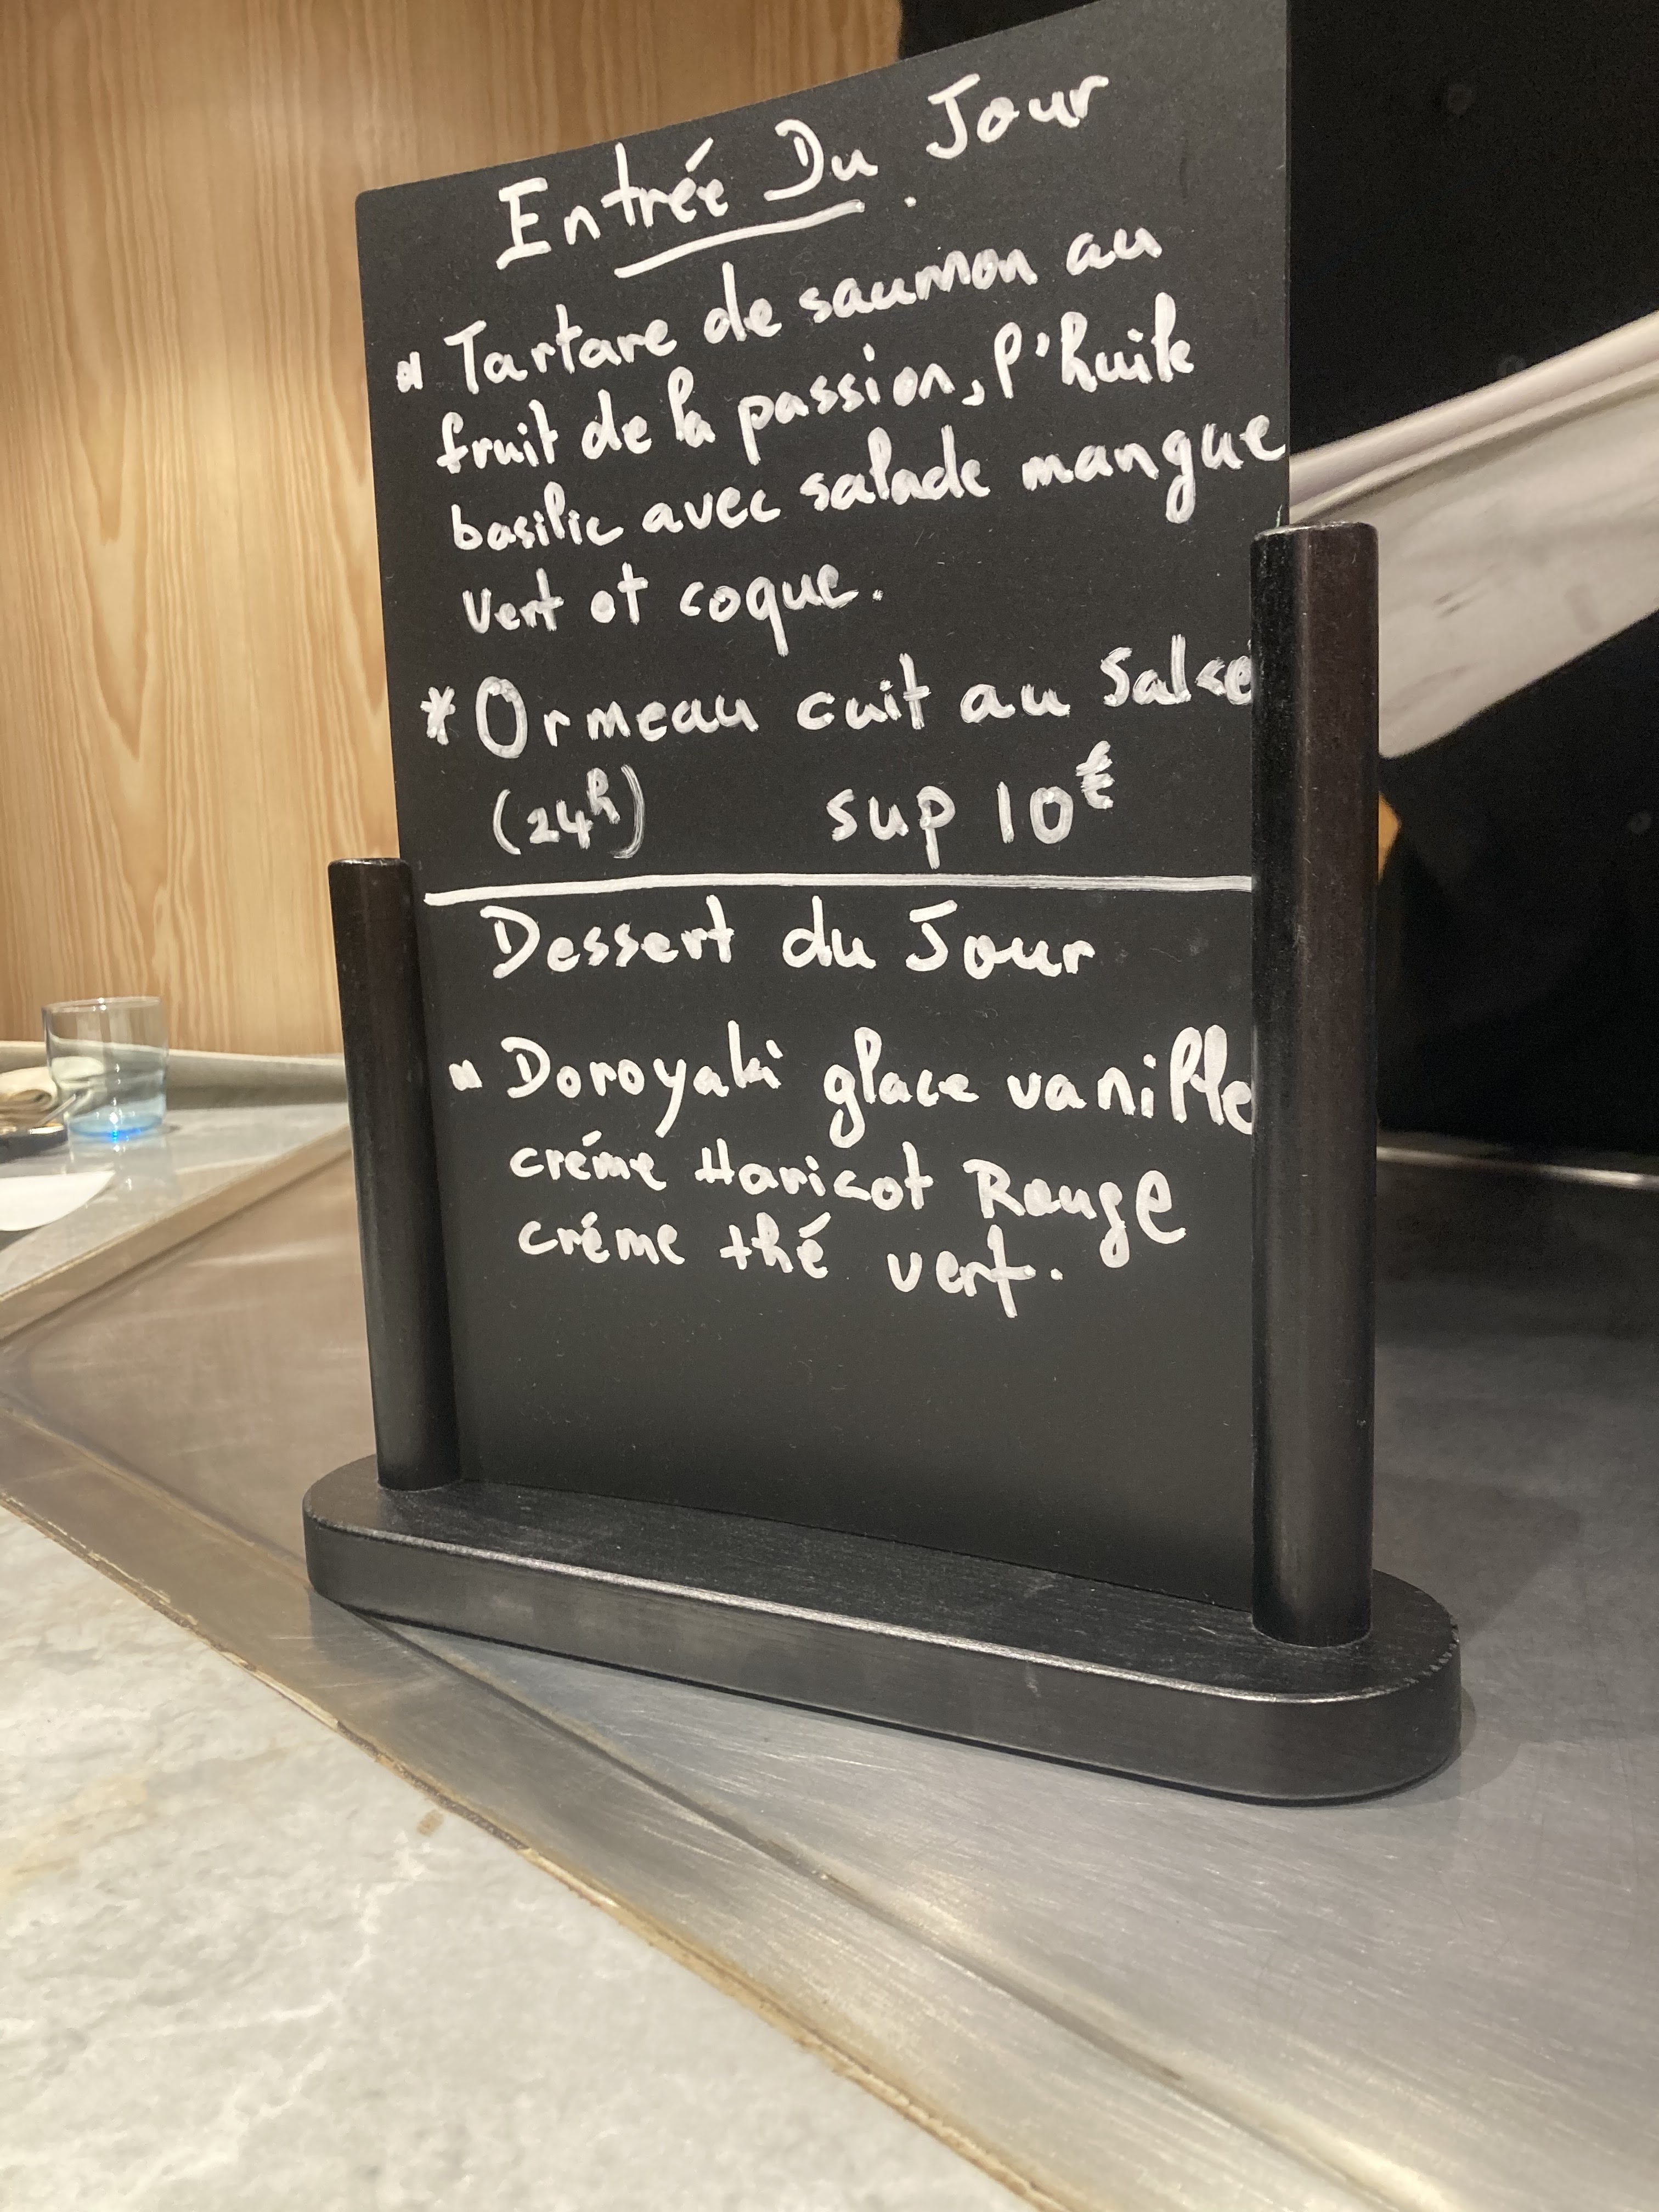 Entrée Du Jour
Tartare de saumon au
fruit de la passion, l'huile
basilic avec salade mangue
vert et coque.
* Ormeau cuit au
(24h) sup 10€
Dessert du Jour
Doroyaki glace vanille
créme Haricot Rouge
créme thé vert.